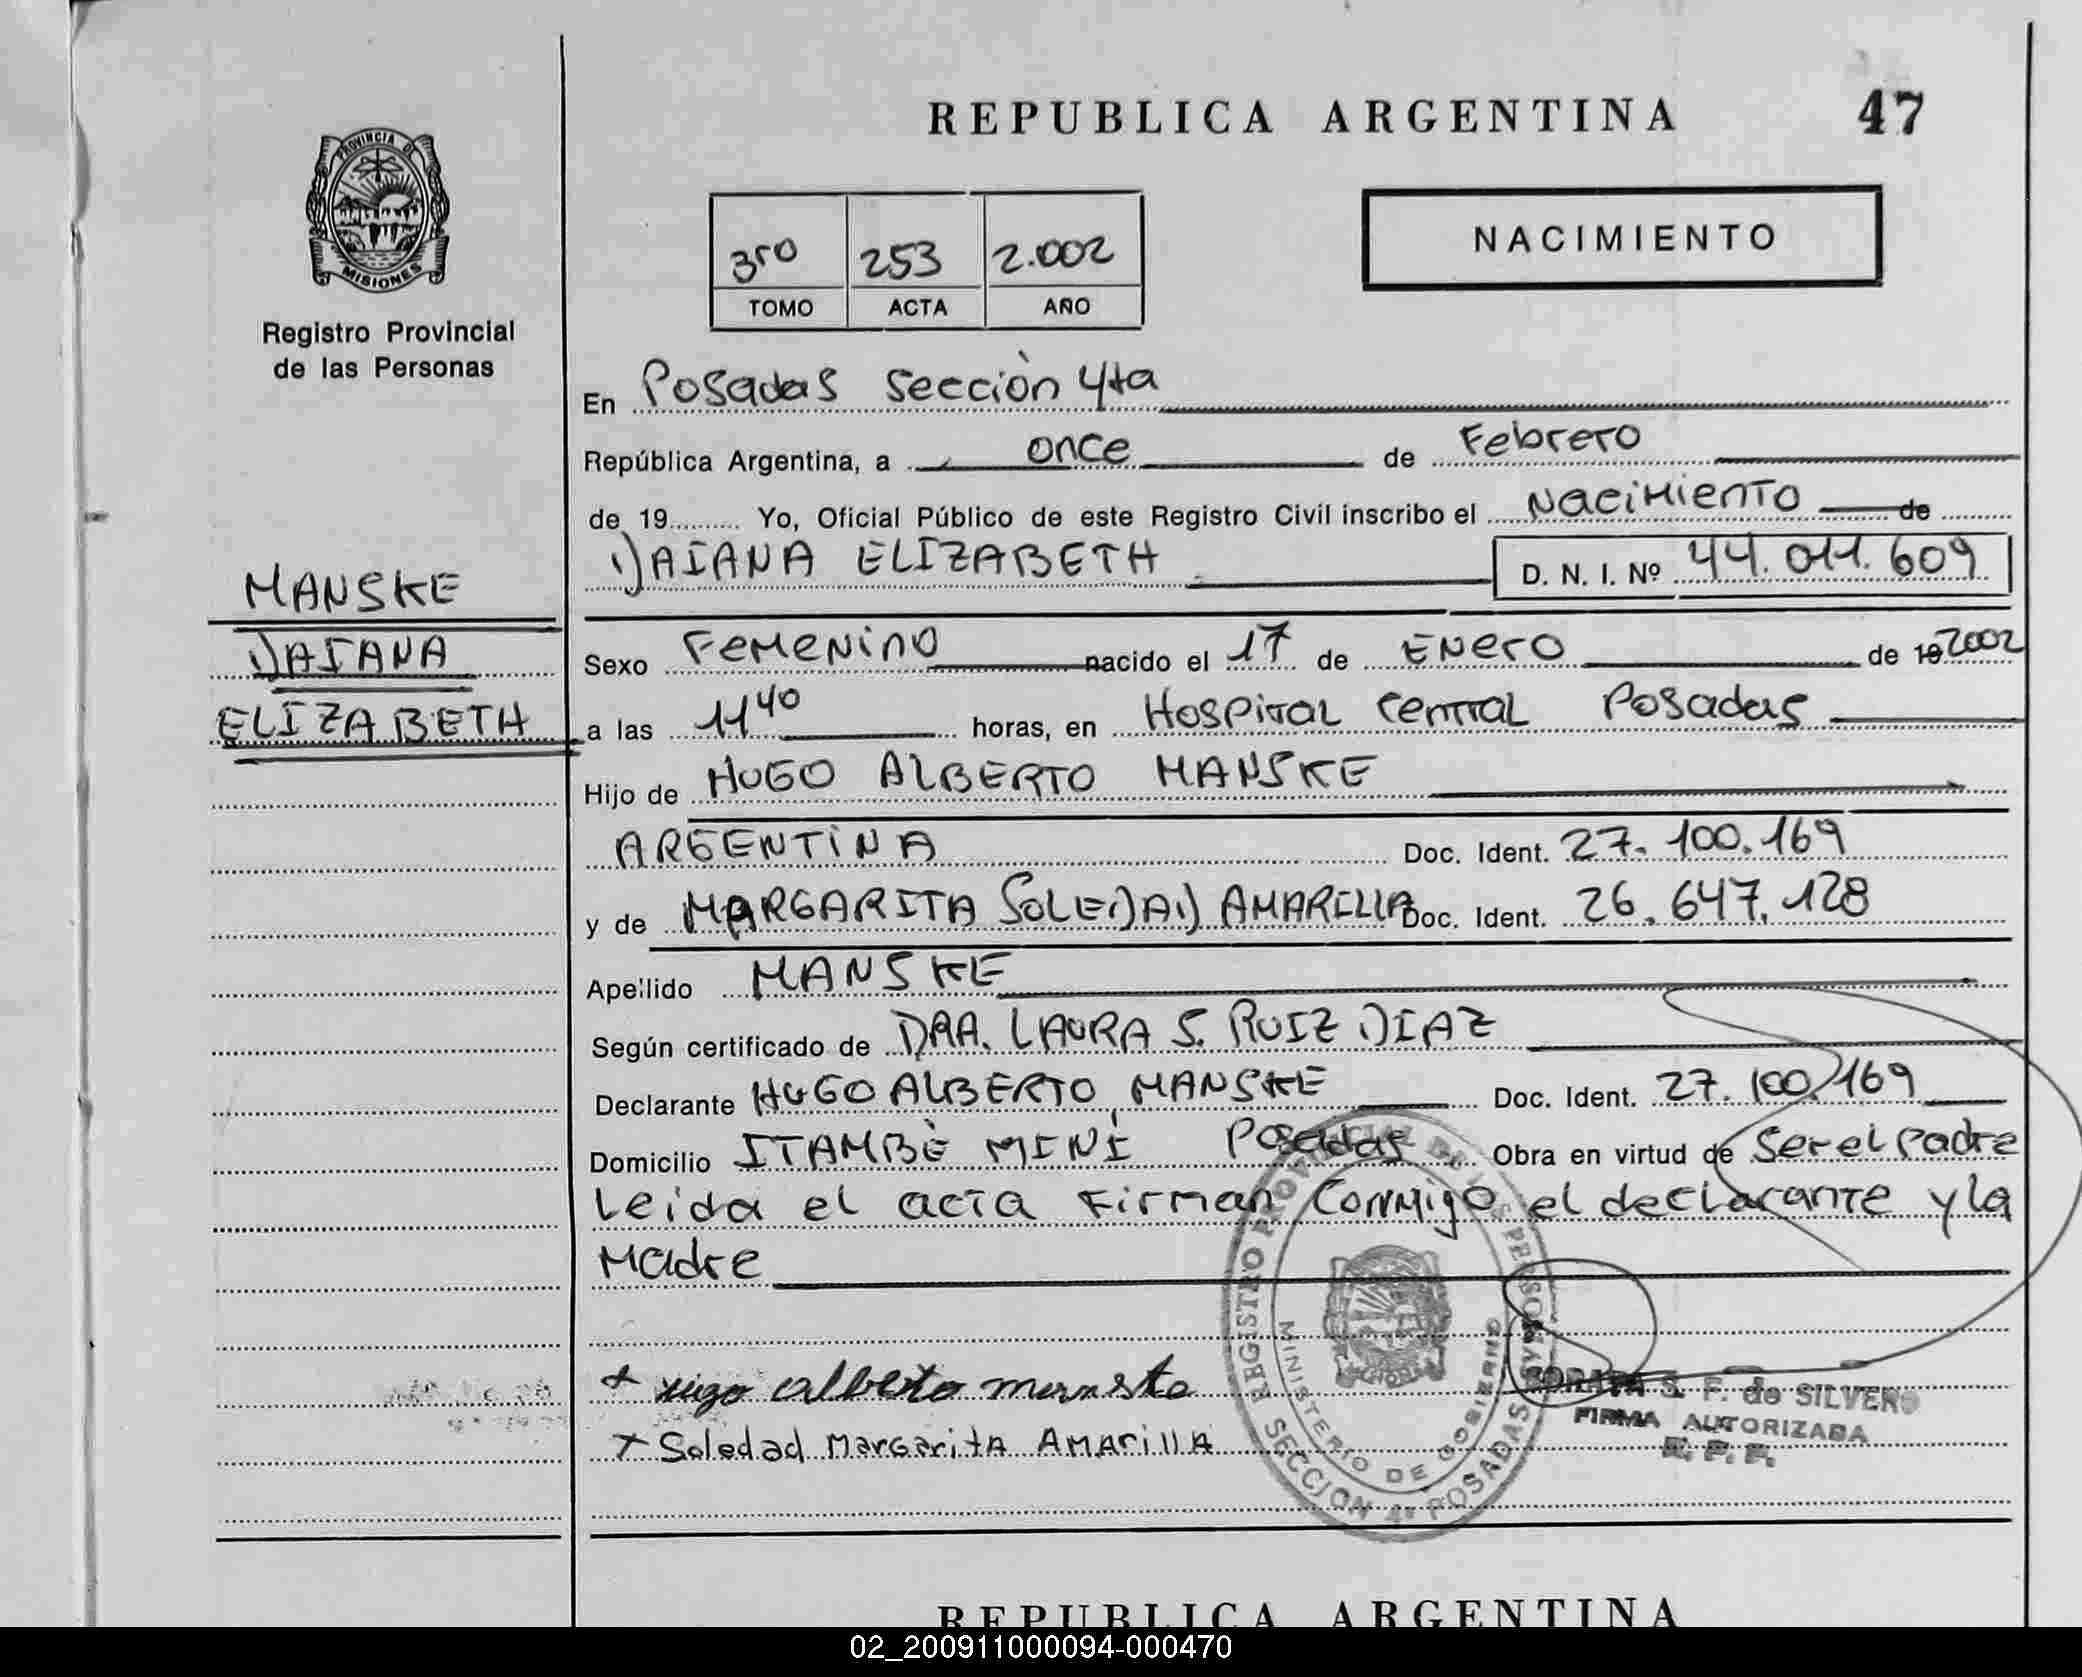 REPUBLICA ARGENTINA
47
PROVINCIA DE
MISIONES
Registro Provincial
de las Personas
3ro 253 2.002
TOMO ACTA AÑO
NACIMIENTO
En Posadas sección 4ta
República Argentina, a once de Febrero
de 19 Yo, Oficial Público de este Registro Civil inscribo el Nacimiento de
DAIANA ELIZABETH D. N. I. Nº 44.011.609
MANSKE
DAIANA
ELIZABETH
Sexo Femenino nacido el 17 de Enero de 19 2002
a las 11 40 horas, en Hospital Central Posadas
Hijo de HUGO ALBERTO MANSKE
ARGENTINA Doc. Ident. 27.100.169
y de MARGARITA SOLEDAD AMARILLA Doc. Ident. 26.647.128
Apellido MANSKE
Según certificado de DRA. LAURA S. RUIZ DIAZ
Declarante HUGO ALBERTO MANSKE Doc. Ident. 27.100.169
Domicilio ITAMBÈ MINÍ Posadas Obra en virtud de ser el padre
Leida el acta firman conmigo el declarante y la
Madre
+ ugo alberto manske
+ Soledad Margarita AMArillA
REGISTRO PROVINCIAL DE LAS PERSONAS
MINISTERIO DE GOBIERNO
SECCION 4ª POSADAS
SORAYA S. F. de SILVERO
FIRMA AUTORIZADA
R. P. P.
REPUBLICA ARGENTINA
02_200911000094-000470